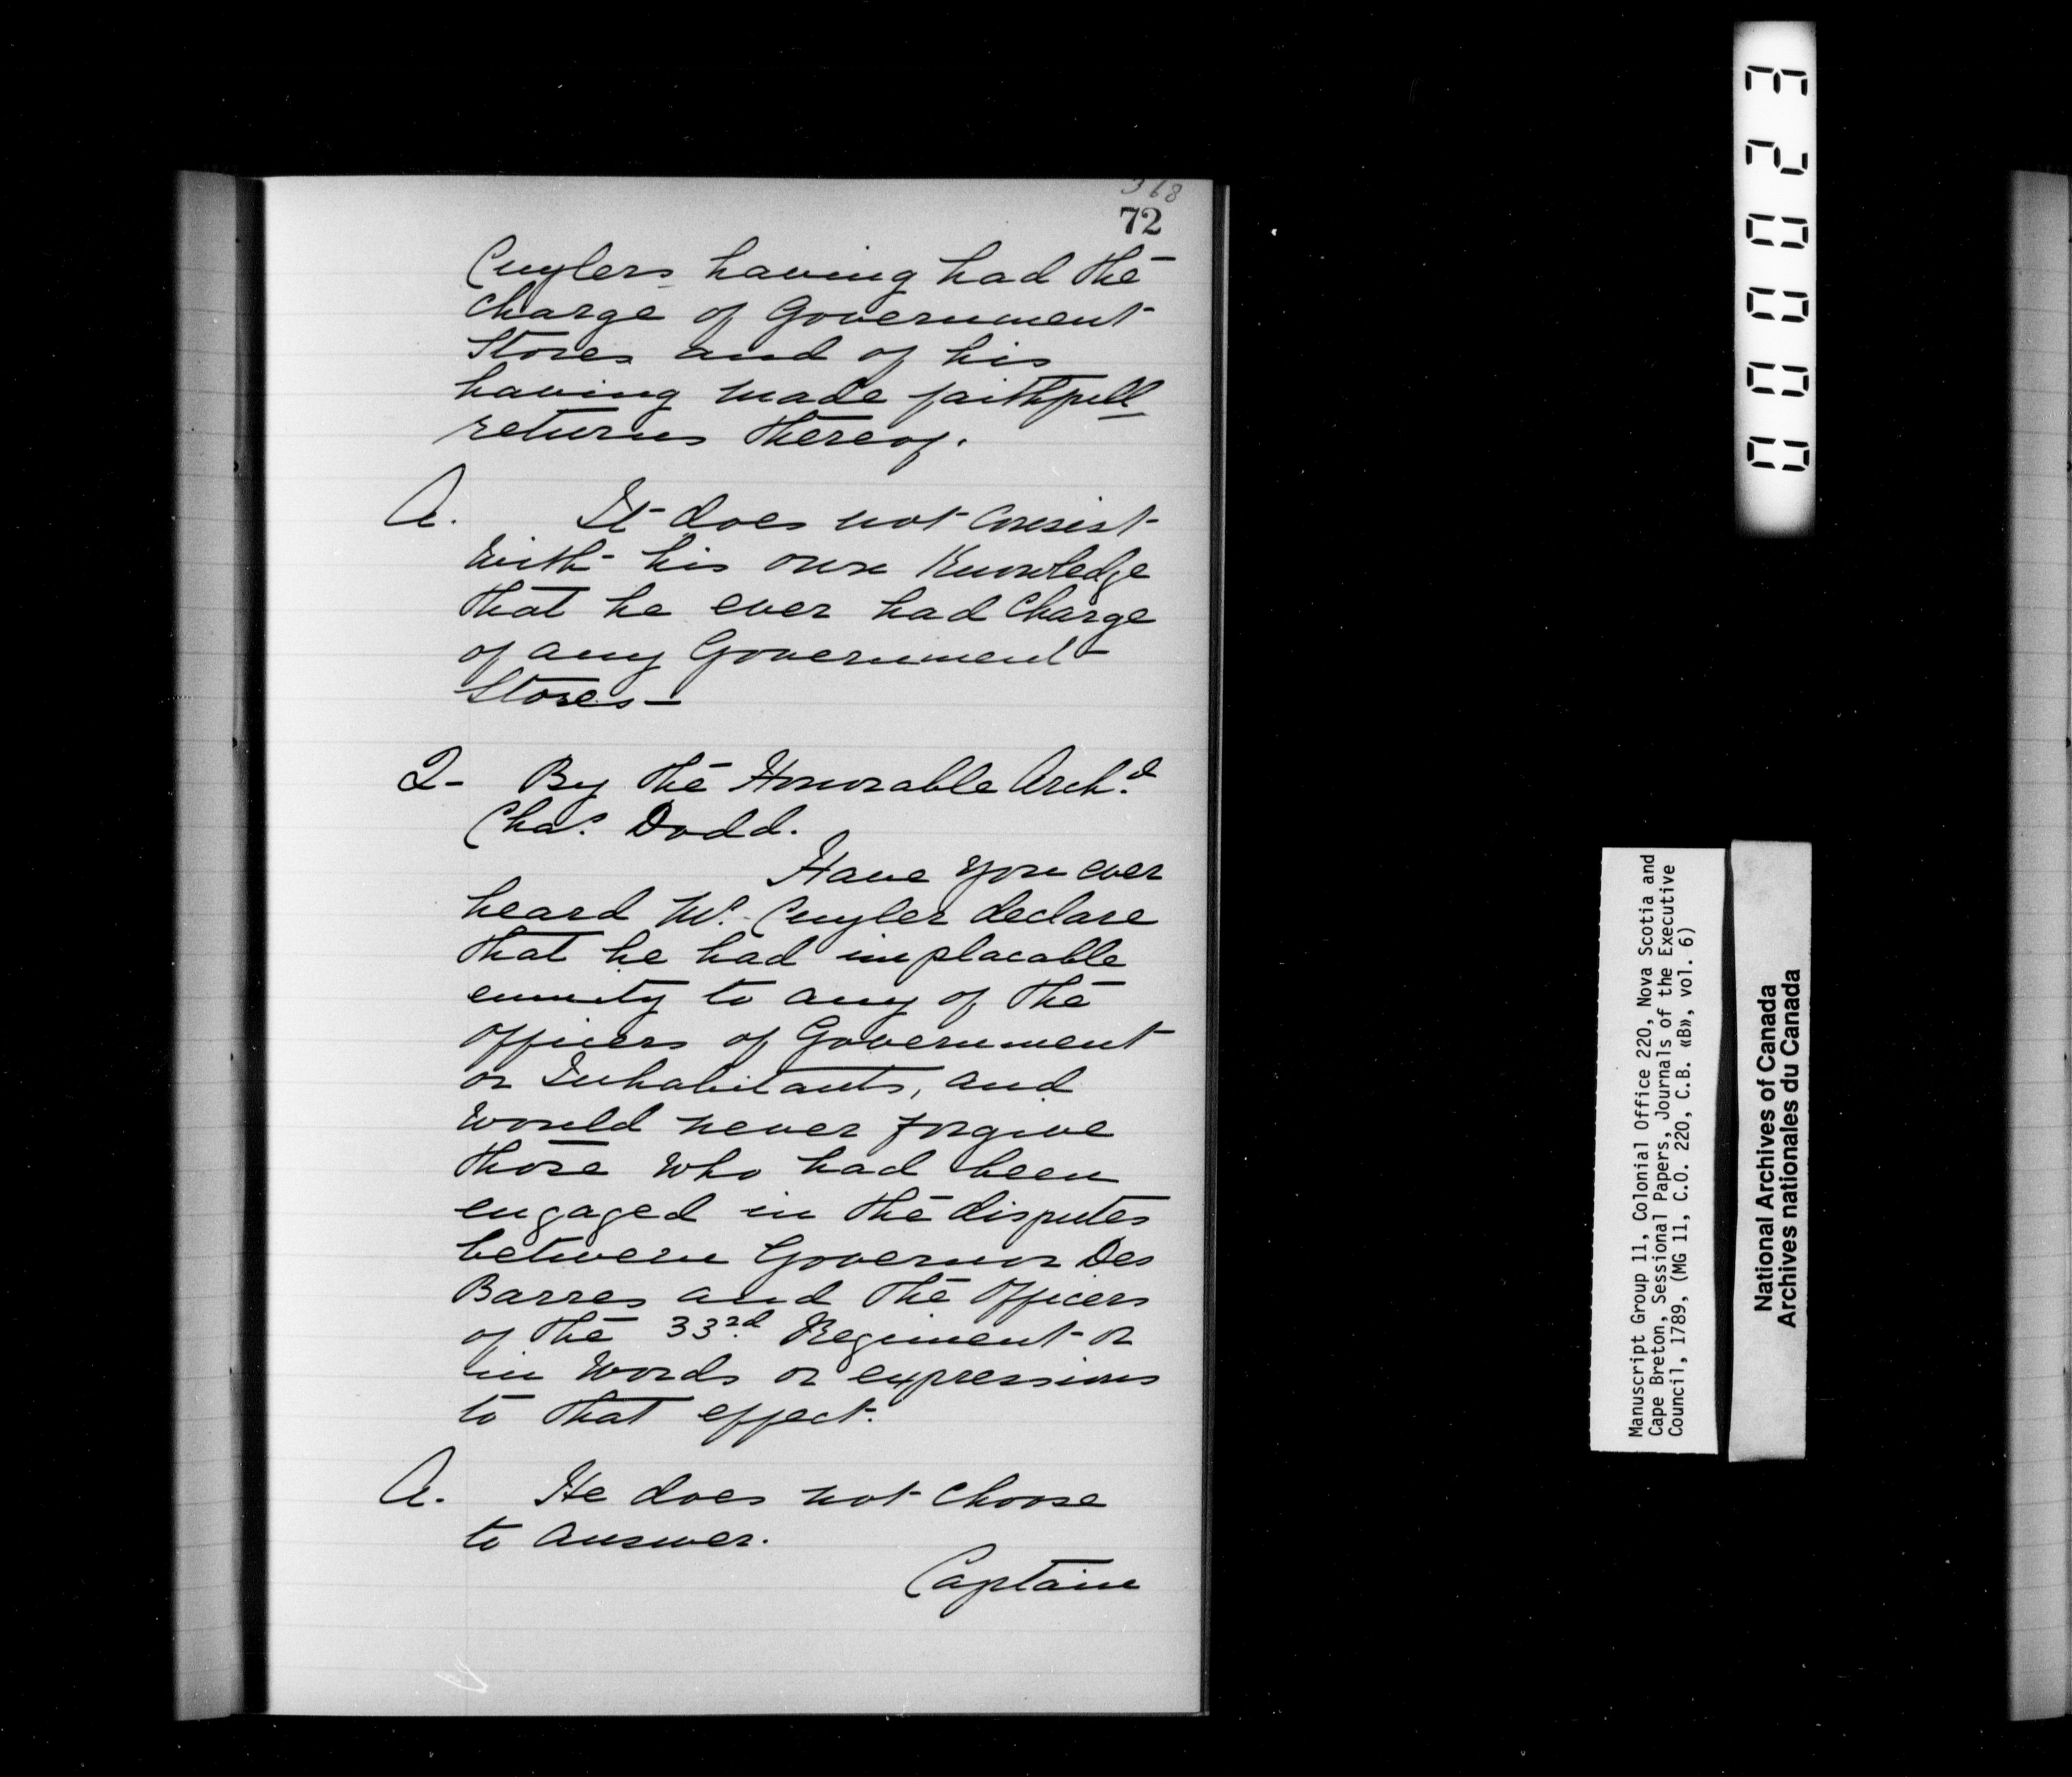 368
72
Cuylers having had the
Charge of Government
Stores and of his
having made faithfull
returns thereof.
A. It does not Consist
with his own Knowledge
that he ever had Charge
of any Government
Stores—
Q- By the Honorable Arch.d
Chas. Dodd.
Have you ever
heard Mr. Cuyler declare
that he had implacable
enmity to any of the
Officers of Government
or Inhabitants, and
would never forgive
those who had been
engaged in the disputes
between Governor Des
Barres and the Officers
of the 33rd. Regiment or
in Words or expressions
to that effect.
A. He does not choose
to answer.
Captain
000023
Manuscript Group 11, Colonial Office 220, Nova Scotia and
Cape Breton, Sessional Papers, Journals of the Executive
Council, 1789, (MG 11, C.O. 220, C.B. «B», vol. 6)
National Archives of Canada
Archives nationales du Canada